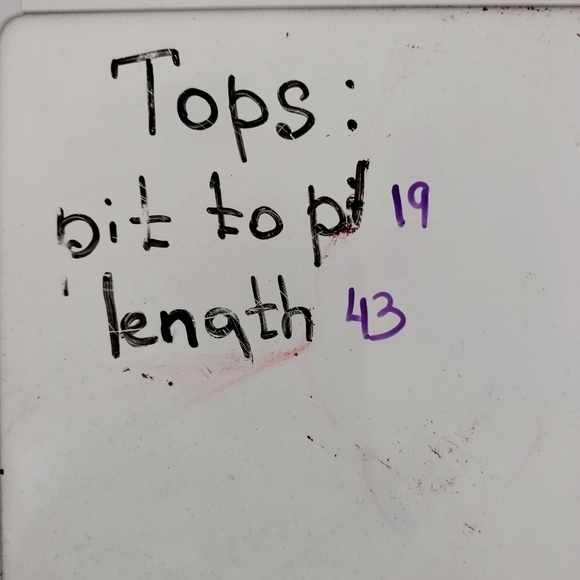 Tops:
pit to pit 19
length 43